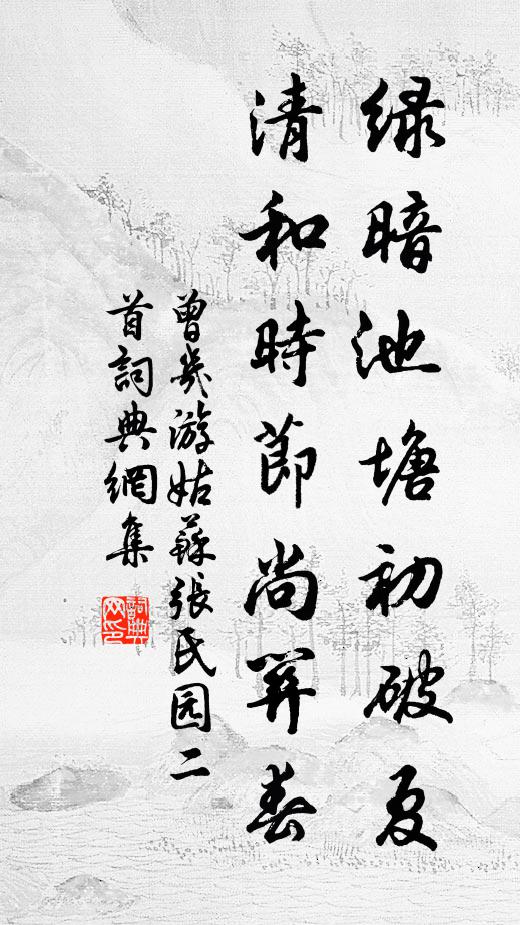 绿暗池塘初破夏
清和時節尚春
曾幾游姑蘇張民园二
首詞典網集
詞典网印